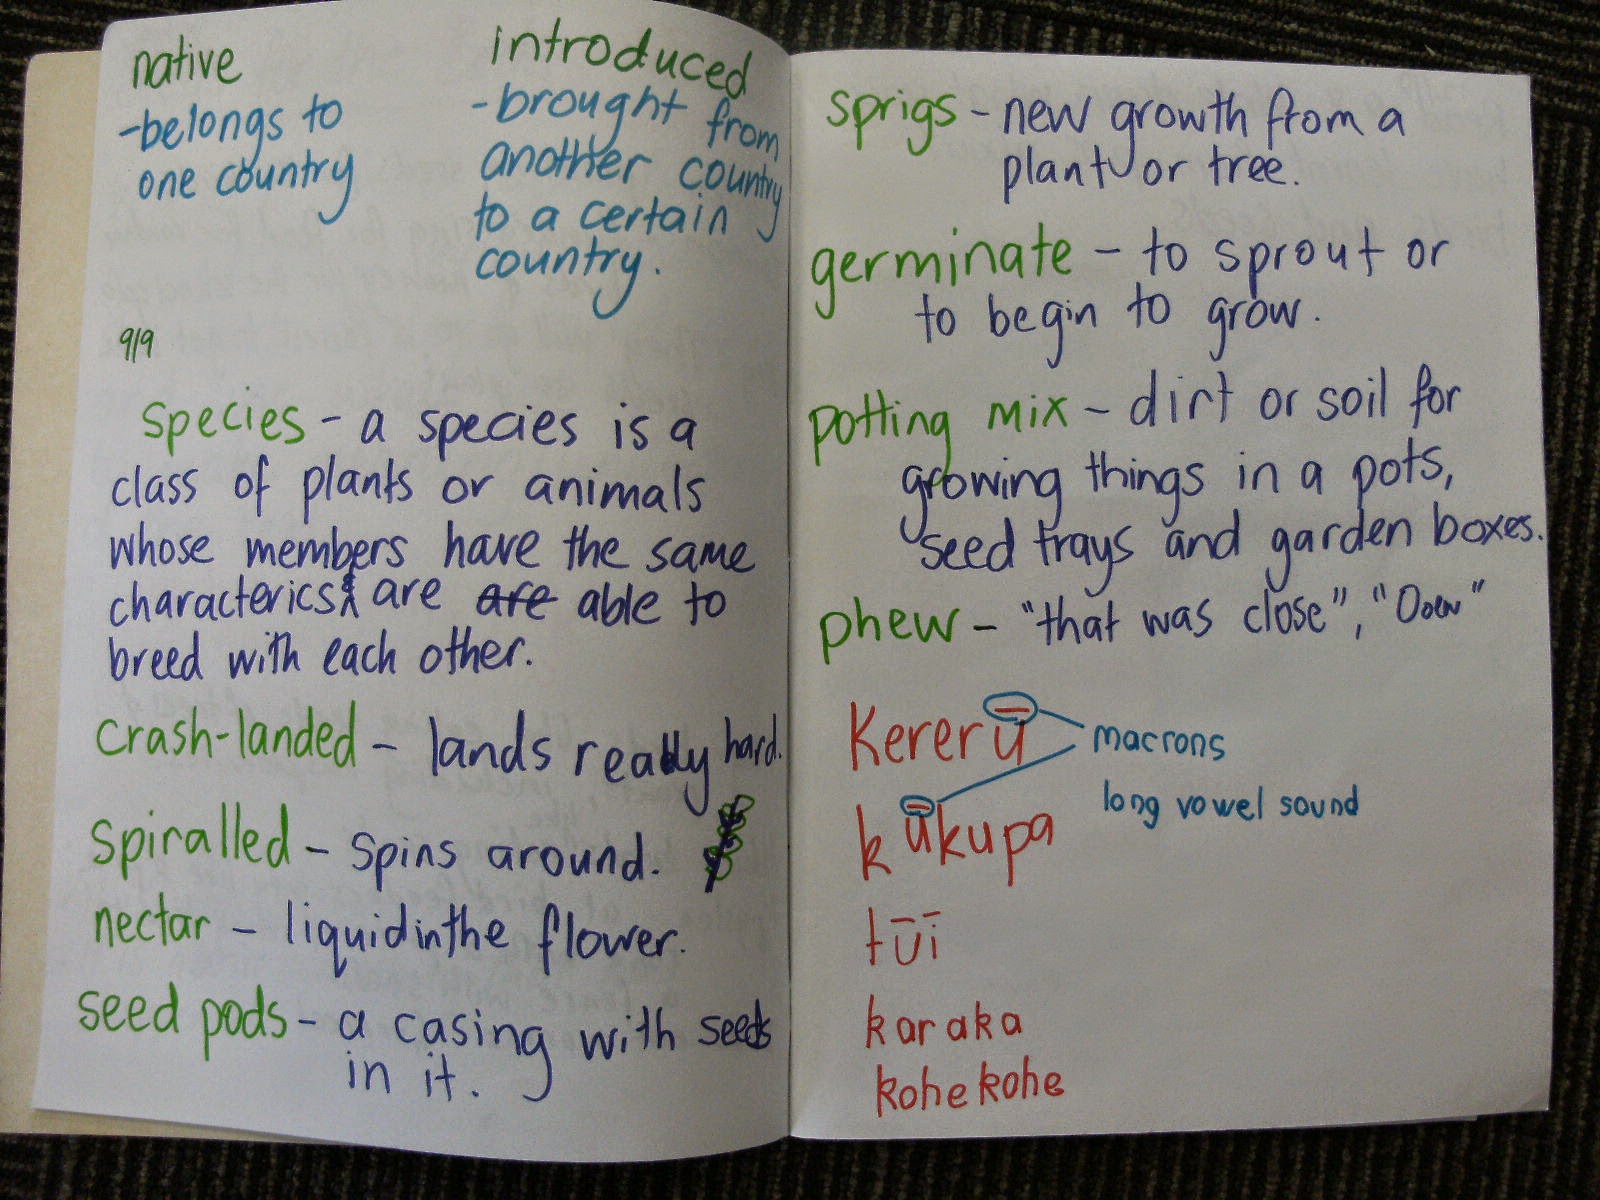 native
-belongs to
one country
introduced
-brought from
another country
to a certain
country.
9/9
species - a species is a
class of plants or animals
whose members have the same
characterics & are are able to
breed with each other.
crash-landed - lands really hard.
spiralled - spins around.
nectar - liquid in the flower.
seed pods - a casing with seeds
in it.
sprigs - new growth from a
plant or tree.
germinate - to sprout or
to begin to grow.
potting mix - dirt or soil for
growing things in a pots,
seed trays and garden boxes.
phew - "that was close", "Ooew"
Kererū
macrons
long vowel sound
kūkupa
tūī
karaka
kohekohe